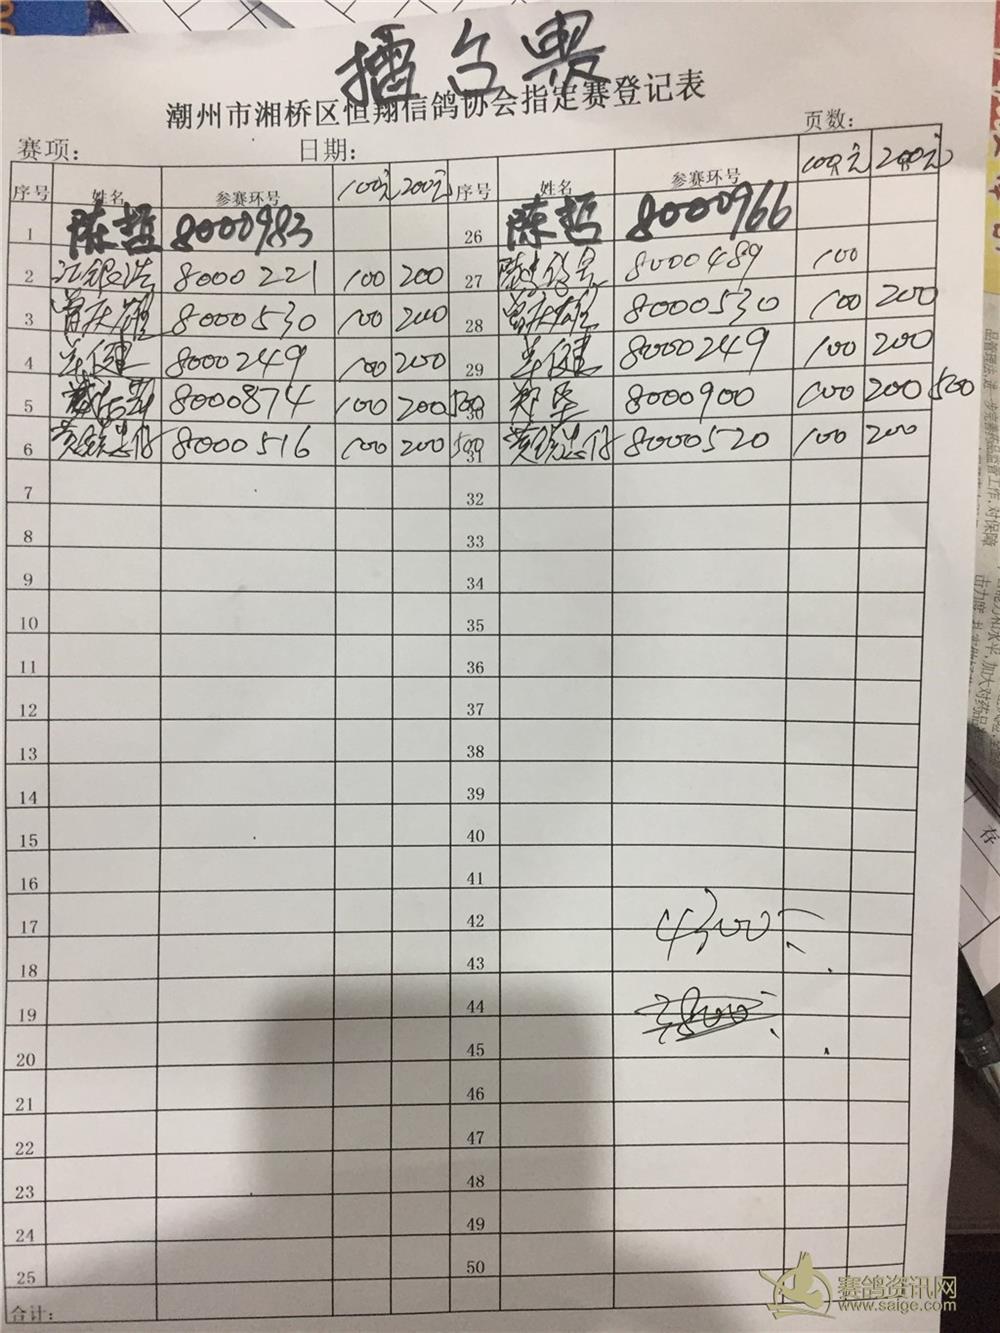 擂台
潮州市湘桥区恒翔信鸽协会指定赛登记表
赛项： 日期： 页数：
序号 姓名 参赛环号 100元 200元 序号 姓名 参赛环号 100元 200元
1 陈哲 8000983 26 陈哲 8000966
2 江银浩 8000221 100 200 27 8000489 100
3 曾庆雄 8000530 100 200 28 曾庆雄 8000530 100 200
4 健 8000249 100 200 29 健 8000249 100 200
5 8000874 100 200 500 30 郑华 8000900 100 200 500
6 黄 8000516 100 200 500 31 黄 8000520 100 200
7 32
8 33
9 34
10 35
11 36
12 37
13 38
14 39
15 40
16 41
17 42 4300
18 43
19 44
20 45
21 46
22 47
23 48
24 49
25 50
合计：
品管理法》进一步完善药品监管工作，对保障
加大对药品
存
赛鸽资讯网
www.saige.com